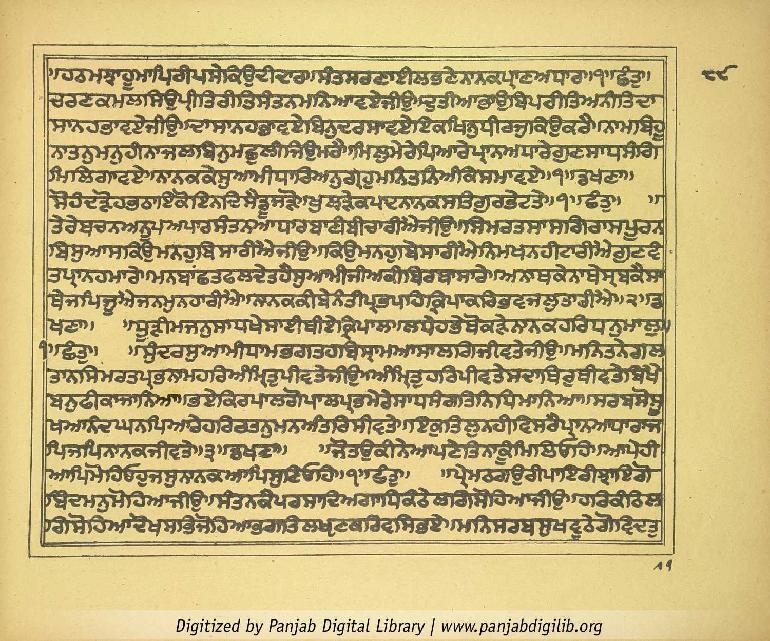 ੮੯
॥ਹਠਮਝਾਹੂਮਾਪਿਰੀਪਸੇਕਿਉਦੀਦਾਰ॥ਸੰਤਸਰਣਾਈਲਭਣੇਨਾਨਕਪ੍ਰਾਣਅਧਾਰ॥੧॥ਛੰਤੁ॥
ਚਰਣਕਮਲਾਸਿਉਪ੍ਰੀਤਿਰੀਤਿਸੰਤਨਮਨਿਆਵਏਜੀਉ॥ਦੁਤੀਆਭਾਉਬਿਪਰੀਤਿਅਨੀਤਿਦਾ
ਸਾਨਹਭਾਵਏਜੀਉ॥ਦਾਸਾਨਹਭਾਵਏਬਿਨੁਦਰਸਾਵਏਇਕਖਿਨੁਧੀਰਜੁਕਿਉਕਰੈ॥ਨਾਮਬਿਹੂ
ਨਾਤਨੁਮਨੁਹੀਨਾਜਲਬਿਨੁਮਛੁਲੀਜਿਉਮਰੈ॥ਮਿਲੁਮੇਰੇਪਿਆਰੇਪ੍ਰਾਨਅਧਾਰੇਗੁਣਸਾਧਸੰਗਿ
ਮਿਲਿਗਾਵਏ॥ਨਾਨਕਕੇਸੁਆਮੀਧਾਰਿਅਨੁਗ੍ਰਹੁਮਨਿਤਨਿਅੰਕਿਸਮਾਵਏ॥੧॥ਡਖਣਾ॥
ਸੋਹੰਦੜੋਹਭਠਾਇਕੋਇਨਦਿਸੈਡੂਜੜੋ॥ਖੁਲੑੜੇਕਪਟਨਾਨਕਸਤਿਗੁਰਭੇਟਤੇ॥੧॥ਛੰਤੁ॥ ॥
ਤੇਰੇਬਚਨਅਨੂਪਅਪਾਰਸੰਤਨਆਧਾਰਬਾਣੀਬੀਚਾਰੀਐਜੀਉ॥ਸਿਮਰਤਸਾਸਗਿਰਾਸਪੂਰਨ
ਬਿਸੁਆਸਕਿਉਮਨਹੁਬਿਸਾਰੀਐਜੀਉ॥ਕਿਉਮਨਹੁਬੇਸਾਰੀਐਨਿਮਖਨਹੀਟਾਰੀਐਗੁਣਵੰ
ਤਪ੍ਰਾਨਹਮਾਰੇ॥ਮਨਬਾਂਛਤਫਲਦੇਤਹੈਸੁਆਮੀਜੀਅਕੀਬਿਰਥਾਸਾਰੇ॥ਅਨਾਥਕੇਨਾਥੇਸ੍ਰਬਕੈਸਾ
ਥੇਜਪਿਜੂਐਜਨਮੁਨਹਾਰੀਐ॥ਨਾਨਕਕੀਬੇਨੰਤੀਪ੍ਰਭਪਹਿਕ੍ਰਿਪਾਕਰਿਭਵਜਲੁਤਾਰੀਐ॥੨॥ਡ
ਖਣਾ॥ ॥ਧੂੜੀਮਜਨੁਸਾਧਖੇਸਾਈਥੀਏਕ੍ਰਿਪਾਲ॥ਲਧੇਹਭੇਥੋਕੜੇਨਾਨਕਹਰਿਧਨੁਮਾਲ॥
੧॥ਛੰਤੁ॥ ॥ਸੁੰਦਰਸੁਆਮੀਧਾਮਭਗਤਹਬਿਸ੍ਰਾਮਆਸਾਲਗਿਜੀਵਤੇਜੀਉ॥ਮਨਿਤਨੇਗਲ
ਤਾਨਸਿਮਰਤਪ੍ਰਭਨਾਮਹਰਿਅੰਮ੍ਰਿਤੁਪੀਵਤੇਜੀਉ॥ਅੰਮ੍ਰਿਤੁਹਰਿਪੀਵਤੇਸਦਾਥਿਰੁਥੀਵਤੇਬਿਖੈ
ਬਨੁਫੀਕਾਜਾਨਿਆ॥ਭਏਕਿਰਪਾਲਗੋਪਾਲਪ੍ਰਭਮੇਰੇਸਾਧਸੰਗਤਿਨਿਧਿਮਾਨਿਆ॥ਸਰਬਸੋਸੂ
ਖਆਨੰਦਘਨਪਿਆਰੇਹਰਿਰਤਨੁਮਨਅੰਤਰਿਸੀਵਤੇ॥ਇਕੁਤਿਲੁਨਹੀਵਿਸਰੈਪ੍ਰਾਨਆਧਾਰਾਜ
ਪਿਜਪਿਨਾਨਕਜੀਵਤੇ॥੩॥ਡਖਣਾ॥ ॥ਜੋਤਉਕੀਨੇਆਪਣੇਤਿਨਾਕੂੰਮਿਲਿਓਹਿ॥ਆਪੇਹੀ
ਆਪਿਮੋਹਿਓਹੁਜਸੁਨਾਨਕਆਪਿਸੁਣਿਓਹਿ॥੧॥ਛੰਤੁ॥ ॥ਪ੍ਰੇਮਠਗਉਰੀਪਾਇਰੀਝਾਇਗੋ
ਬਿੰਦਮਨੁਮੋਹਿਆਜੀਉ॥ਸੰਤਨਕੈਪਰਸਾਦਿਅਗਾਧਿਕੰਠੇਲਗਿਸੋਹਿਆਜੀਉ॥ਹਰਿਕੰਠਿਲ
ਗਿਸੋਹਿਆਦੋਖਸਭਿਜੋਹਿਆਭਗਤਿਲਖੵਣਕਰਿਵਸਿਭਏ॥ਮਨਿਸਰਬਸੁਖਵੁਠੇਗੋਵਿਦਤੁ
Digitized by Panjab Digital Library | www.panjabdigilib.org